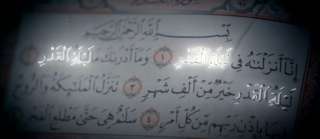 بِسْمِ اللَّهِ الرَّحْمَٰنِ الرَّحِيمِ
إِنَّا أَنْزَلْنَاهُ فِي لَيْلَةِ الْقَدْرِ ١ وَمَا أَدْرَاكَ مَا لَيْلَةُ الْقَدْرِ
لَيْلَةُ الْقَدْرِ خَيْرٌ مِنْ أَلْفِ شَهْرٍ ٣ تَنَزَّلُ الْمَلَائِكَةُ وَالرُّوحُ
بِإِذْنِ رَبِّهِمْ مِنْ كُلِّ أَمْرٍ ٤ سَلَامٌ هِيَ حَتَّىٰ مَطْلَعِ الْفَجْرِ